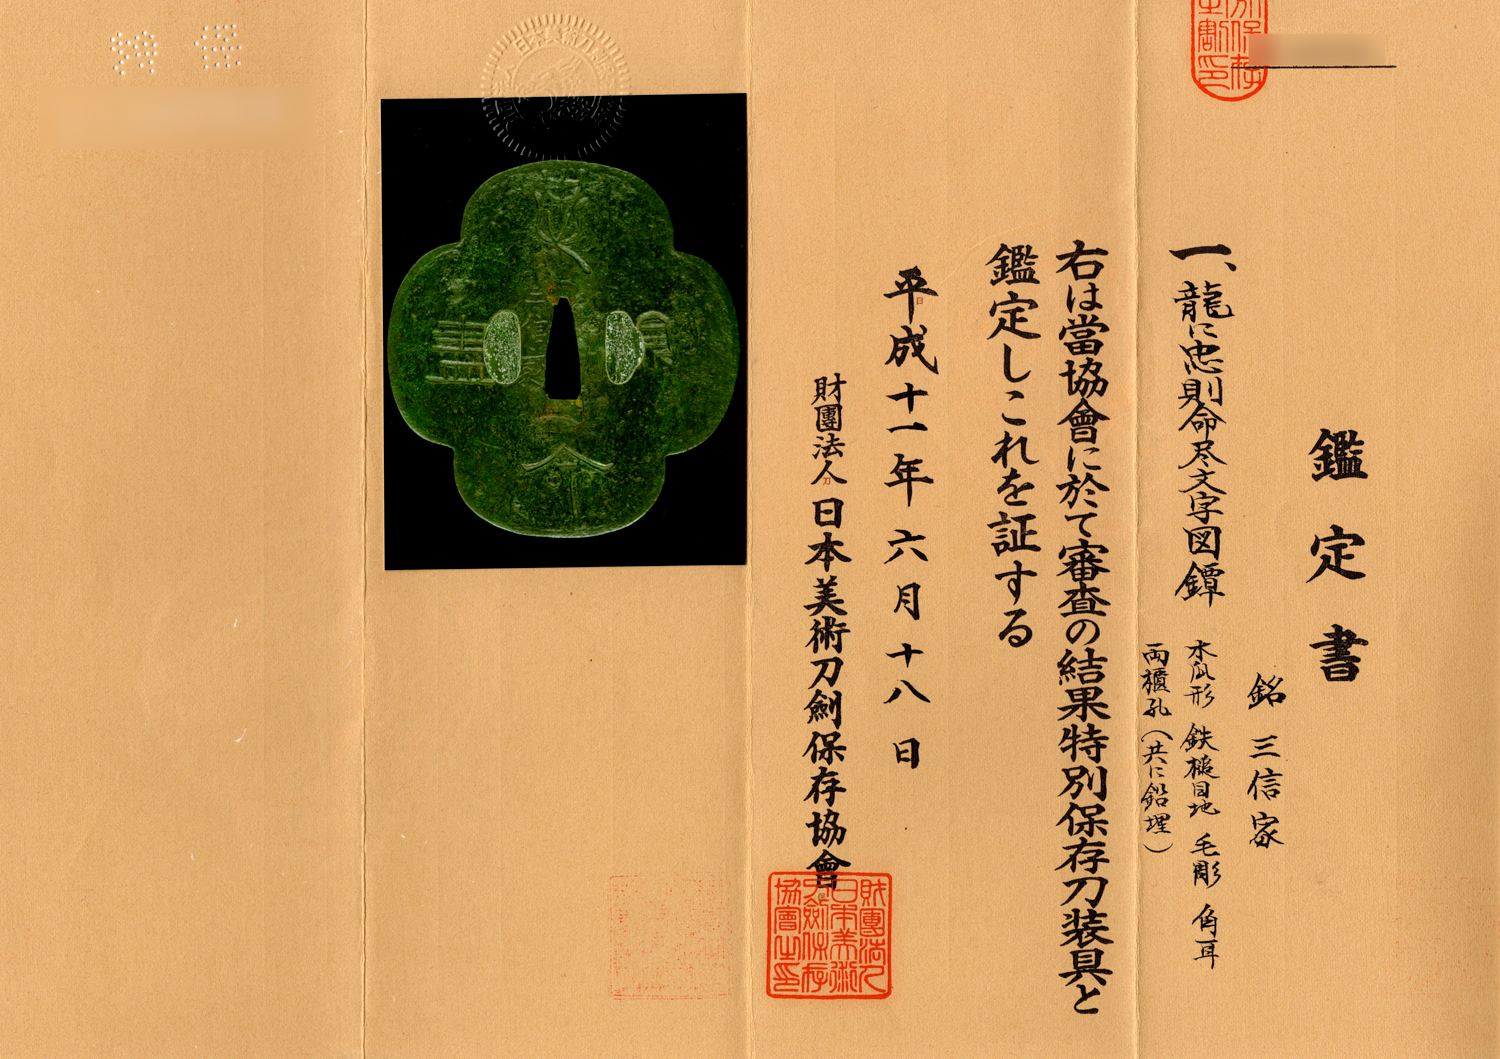 鑑定書
銘 三信家
一、龍に忠則命尽文字図鐔
木瓜形 鉄槌目地 毛彫 角耳
両櫃孔(共に鉛埋)
右は當協會に於て審査の結果特別保存刀装具と
鑑定しこれを証する
平成十一年六月十八日
財團法人日本美術刀劍保存協會
財團法人
日本美術
刀劍保存
協會之印